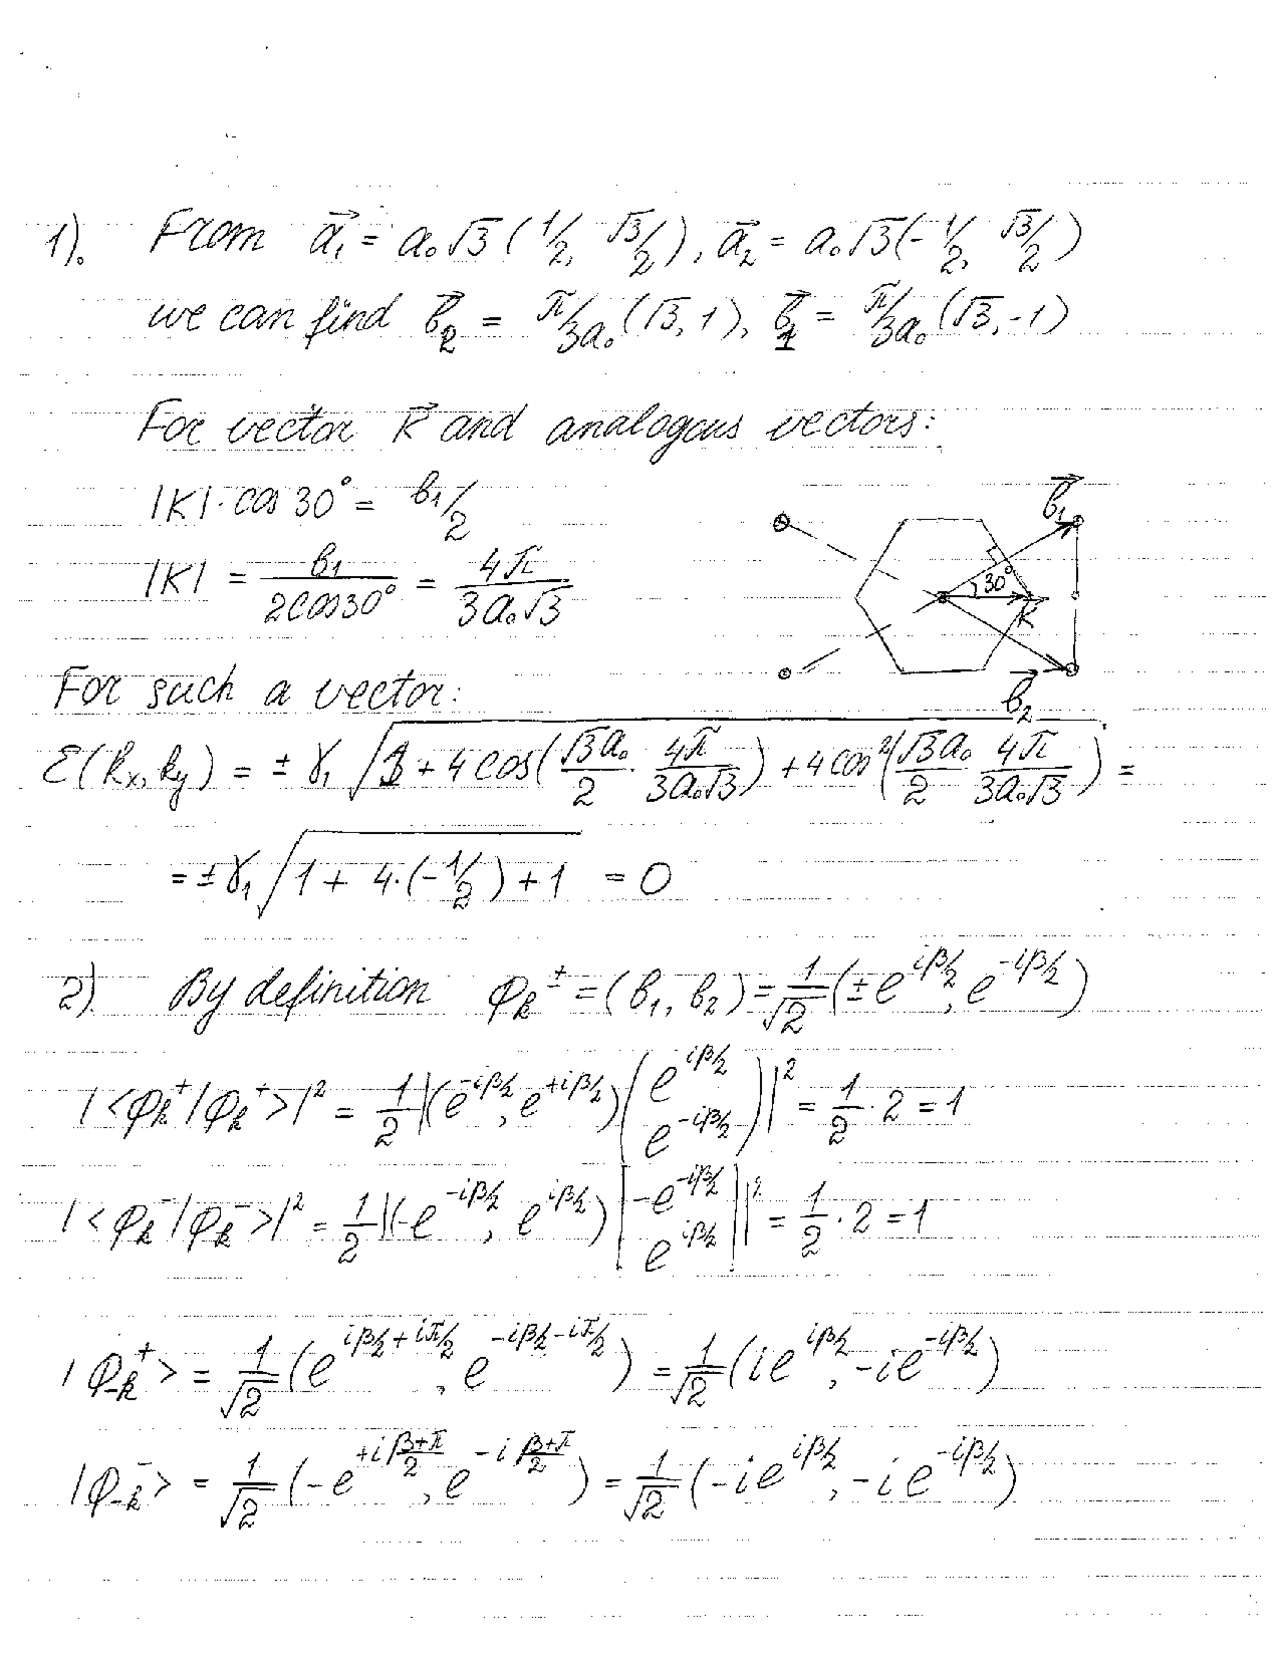 1). From a⃗₁ = a₀√3 (1/2, √3/2), a⃗₂ = a₀√3 (-1/2, √3/2)
we can find b⃗₂ = π/3a₀ (√3, 1), b⃗₁ = π/3a₀ (√3, -1)
For vector K⃗ and analogous vectors:
|K| · cos 30° = b₁/2
|K| = b₁/(2cos30°) = 4π/(3a₀√3)
b⃗₁
30°
K
b⃗₂
For such a vector:
ε(kₓ, k_y) = ± γ₁ √(1 + 4 cos(√3a₀/2 · 4π/(3a₀√3)) + 4 cos²(√3a₀/2 · 4π/(3a₀√3))) =
= ± γ₁ √(1 + 4·(-1/2) + 1) = 0
2) By definition φ_k^± = (b₁, b₂) = 1/√2 (± e^{iβ/2}, e^{-iβ/2})
|<φ_k^+|φ_k^+>|² = 1/2 |(e^{-iβ/2}, e^{+iβ/2}) (e^{iβ/2} e^{-iβ/2})|² = 1/2 · 2 = 1
|<φ_k^-|φ_k^->|² = 1/2 |(-e^{-iβ/2}, e^{iβ/2}) [-e^{-iβ/2} e^{iβ/2}]|² = 1/2 · 2 = 1
|φ_{-k}^+> = 1/√2 (e^{iβ/2+iπ/2}, e^{-iβ/2-iπ/2}) = 1/√2 (ie^{iβ/2}, -ie^{-iβ/2})
|φ_{-k}^-> = 1/√2 (-e^{+i(β+π)/2}, e^{-i(β+π)/2}) = 1/√2 (-ie^{iβ/2}, -ie^{-iβ/2})